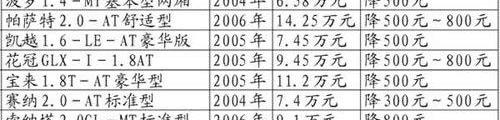 波罗1.4-MT基本型两厢 2004年 6.58万元 降500元
帕萨特2.0-AT舒适型 2006年 14.25万元 降500元~800元
凯越1.6-LE-AT豪华版 2005年 7.45万元 降500元
花冠GLX-I-1.8AT 2005年 9.45万元 降500元~800元
宝来1.8T-AT豪华型 2005年 11.2万元 降500元
赛纳2.0-AT标准型 2004年 7.4万元 降300元~500元
索纳塔2.0GL-MT标准型 2006年 9.1万元 降800元